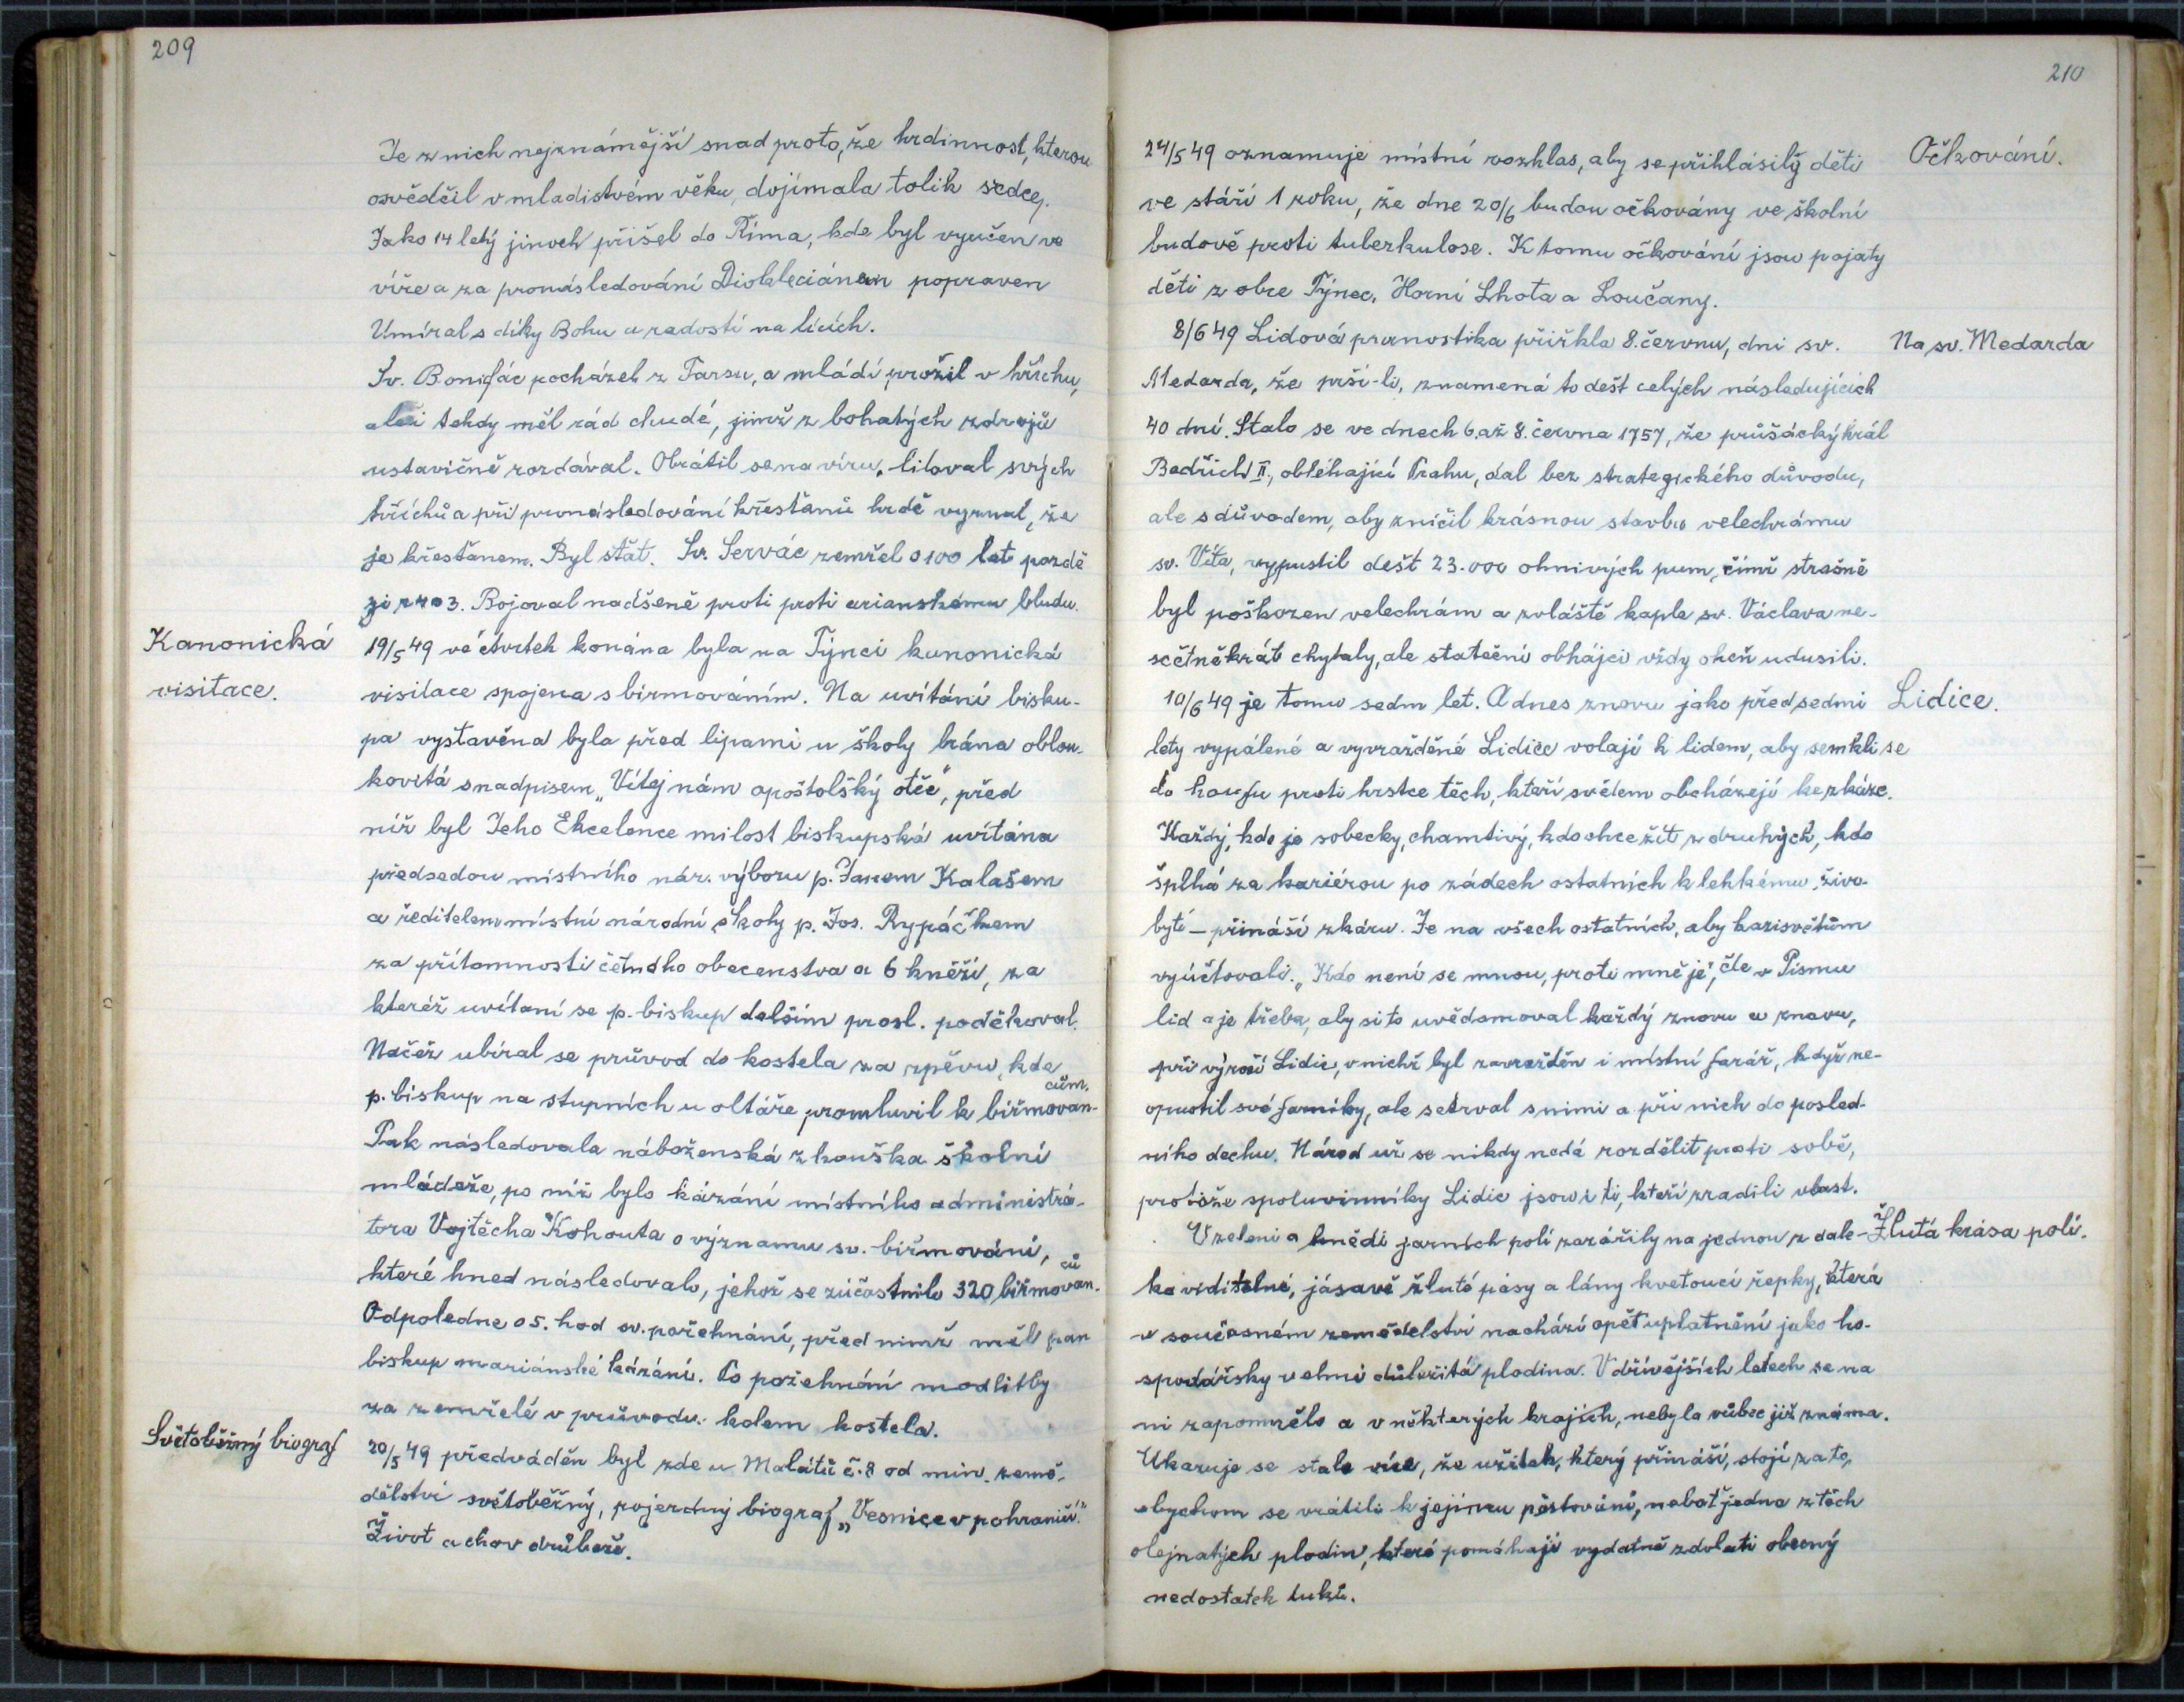 209
Je z nich nejznámější snad proto, že hrdinnost, kterou
osvědčil v mladistvém věku, dojímala tolik srdce.
Jako 14 letý jinoch přišel do Říma, kde byl vyučen ve
víře a za pronásledování Diokleciánem popraven
Umíral s díky Bohu a radostí na lících.
Sv. Bonifác pocházel z Tarsu, a mládí prožil v hříchu,
ale i tehdy měl rád chudé, jimž z bohatých zdrojů
ustavičně rozdával. Obrátil se na víru, litoval svých
hříchů a při pronásledování křesťanů hrdě vyznal, že
je křesťanem. Byl sťat. Sv. Servác zemřel o 100 let pozdě
ji r 403. Bojoval nadšeně proti proti arianskému bludu.
Kanonická
visitace.
19/5 49 ve čtvrtek konána byla na Týnci kanonická
visitace spojena s biřmováním. Na uvítání bisku-
pa vystavěna byla před lipami u školy brána oblou-
kovitá s nadpisem „Vítej nám apoštolský otče", před
níž byl Jeho Ekcelence milost biskupská uvítána
předsedou místního nár. výboru p. Janem Kalašem
a ředitelem místní národní školy p. Jos. Rypáčkem
za přítomnosti četného obecenstva a 6 kněží, za
kteréž uvítaní se p. biskup delším prosl. poděkoval.
Načež ubíral se průvod do kostela za zpěvu, kde
p. biskup na stupních u oltáře promluvil k biřmovan-
cům.
Pak následovala náboženská zkouška školní
mládeže, po níž bylo kázání místního administrá-
tora Vojtěcha Kohouta o významu sv. biřmování,
které hned následovalo, jehož se zúčastnilo 320 biřmovan-
ců
Odpoledne o 5. hod sv. požehnání, před nimž měl pan
biskup mariánské kázání. Po požehnání modlitby
za zemřelé v průvodu kolem kostela.
Světoběžný biograf
20/5 49 předváděn byl zde u Malátů č. 8 od min. země-
dělství světoběžný, pojezdný biograf „Vesnice v pohraničí."
Život a chov drůbeže.
210
24/5 49 oznamuje místní rozhlas, aby se přihlásily děti
Očkování.
ve stáří 1 roku, že dne 20/6 budou očkovány ve školní
budově proti tuberkulose. K tomu očkování jsou pojaty
děti z obce Týnec, Horní Lhota a Loučany.
8/6 49 Lidová pranostika přiřkla 8. červnu, dni sv.
Na sv. Medarda
Medarda, že prší-li, znamená to dešt celých následujících
40 dní. Stalo se ve dnech 6. až 8. června 1757, že průšácký král
Bedřich II., obléhající Prahu, dal bez strategického důvodu,
ale s důvodem, aby zničil krásnou stavbu velechrámu
sv. Víta, vypustil dešt 23.000 ohnivých pum, čímž strašně
byl poškozen velechrám a zvláště kaple sv. Václava ne-
sčetněkrát chytaly, ale stateční obhájci vždy oheň udusili.
10/6 49 je tomu sedm let. A dnes znovu jako před sedmi
Lidice.
lety vypálené a vyvražděné Lidice volají k lidem, aby semkli se
do houfu proti hrstce těch, kteří světem obcházejí ke zkáze.
Každý, kdo je sobecky, chamtivý, kdo chce žít z druhých, kdo
šplhá za kariérou po zádech ostatních k lehkému živo-
bytí – přináší zkázu. Je na všech ostatních, aby kazisvětům
vyúčtovali. „Kdo není se mnou, proti mně je", čte v Písmu
lid a je třeba, aby si to uvědomoval každý znovu a znovu,
při výročí Lidic, v nichž byl zavražděn i místní farář, když ne-
opustil své farníky, ale setrval s nimi a při nich do posled-
ního dechu. Národ už se nikdy nedá rozdělit proti sobě,
protože spoluvinníky Lidic jsou i ti, kteří zradili vlast.
V zeleni a hnědi jarních polí zazářily na jednou z dale-
Žlutá krása polí.
ka viditelné, jásavě žluté pásy a lány kvetoucí řepky, která
v současném zemědelství nachází opět uplatnění jako ho-
spodářsky velmi důležitá plodina. V dřívějších letech se na
ni zapomnělo a v některých krajích, nebyla vůbec již známa.
Ukazuje se stale více, že užitek, který přináší, stojí za to,
abychom se vrátili k jejímu pěstování, neboť jedna z těch
olejnatých plodin, které pomáhají vydatně zdolati obecný
nedostatek tuků.